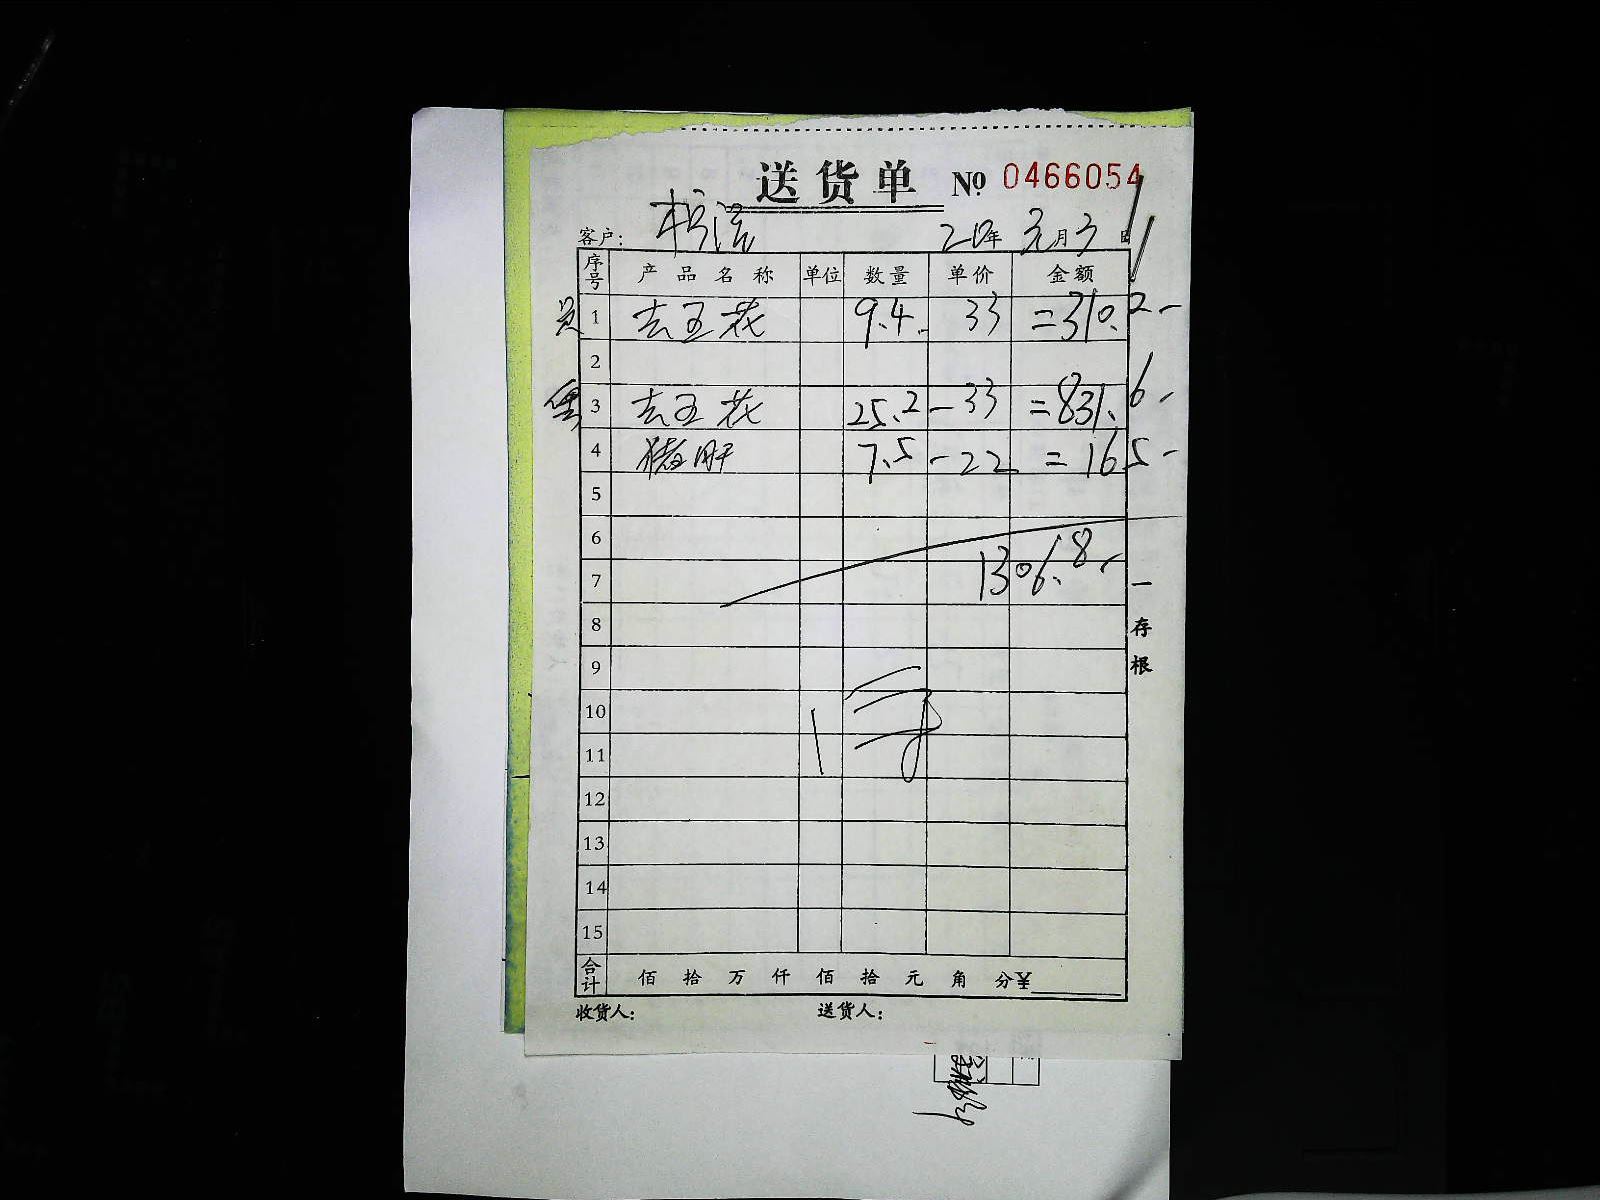 送货单 № 0466054
客户： 20年元月3日
序号 产品名称 单位 数量 单价 金额
1 去玉花 9.4- 33 =310.2-
2
3 去玉花 25.2-33 =831.6-
4 猪肝 7.5-22 =165-
5
6
1306.8-
7
8
9
10
11
12
13
14
15
一存根
合计 佰拾万仟佰拾元角分¥
收货人： 送货人：